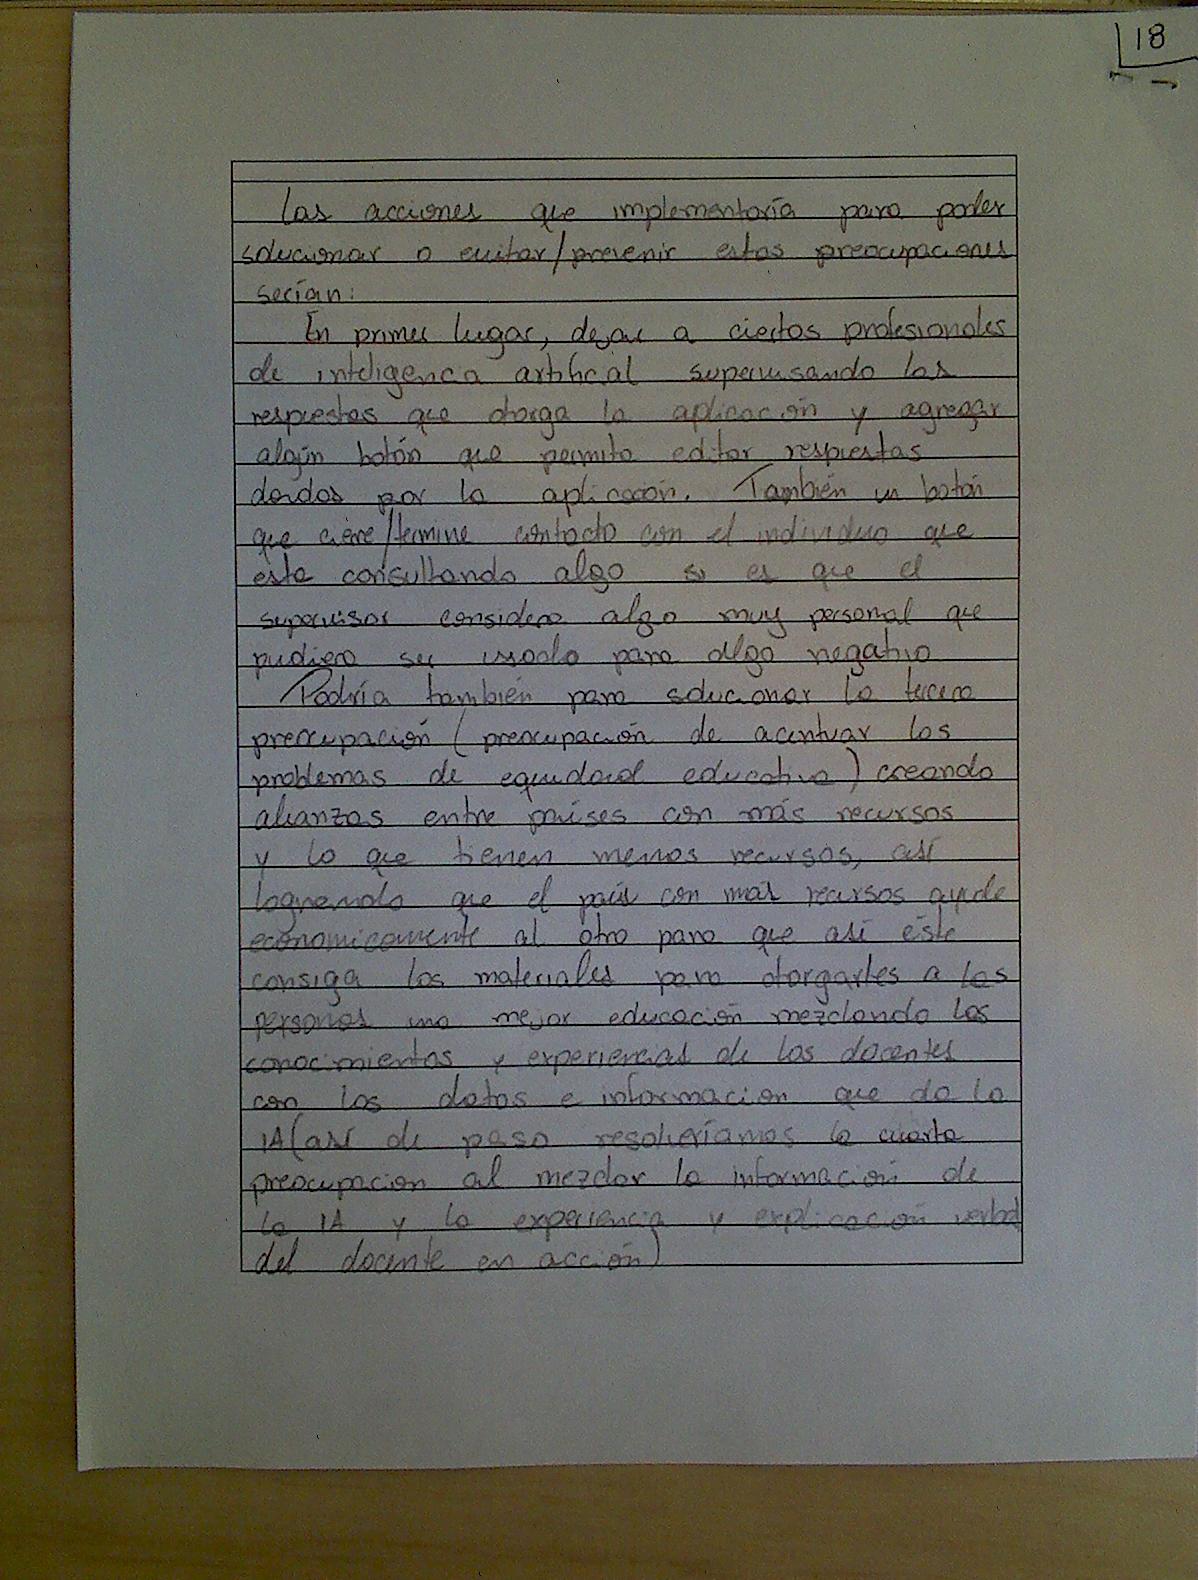 18
Las acciones que implementaría para poder
solucionar o evitar/prevenir estas preocupaciones
serían:
En primer lugar, dejar a ciertos profesionales
de inteligencia artificial supervisando las
respuestas que otorga la aplicación y agregar
algún botón que permita editar respuestas
dadas por la aplicación. También un botón
que cierre/termine contacto con el individuo que
esta consultando algo si es que el
supervisor considera algo muy personal que
pudiera ser usado para algo negativo
Podría también para solucionar la tercera
preocupación (preocupación de acentuar los
problemas de equidad educativa) creando
alianzas entre países con más recursos
y lo que tienen menos recursos, así
logrando que el país con más recursos ayude
economicamente al otro para que así este
consiga los materiales para otorgarles a las
personas una mejor educación mezclando los
conocimientos y experiencias de los docentes
con los datos e información que da la
IA (así de paso resolveríamos la cuarta
preocupación al mezclar la información de
la IA y la experiencia y explicación verbal
del docente en acción)